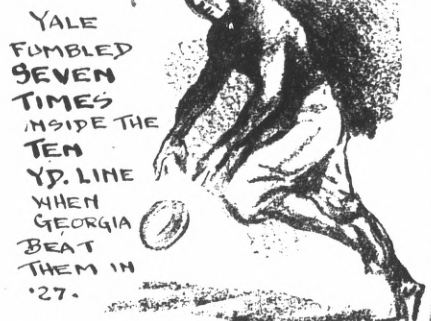 YALE
FUMBLED
SEVEN
TIMES
INSIDE THE
TEN
YD. LINE
WHEN
GEORGIA
BEAT
THEM IN
'27.